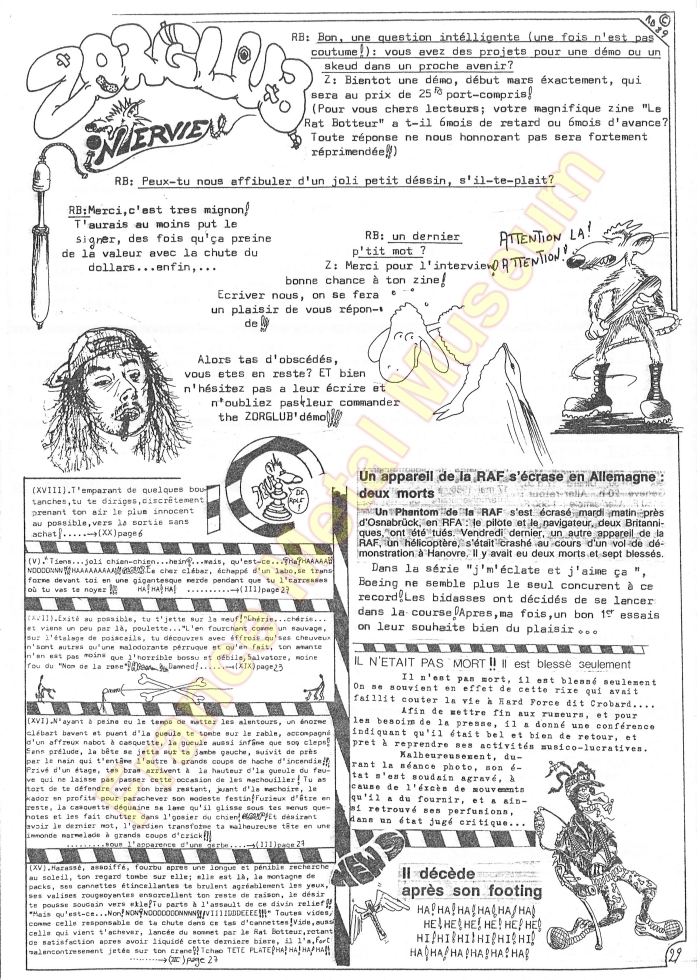 10 © 89
ZORGLUB
INTERVIEW
RB: Bon, une question intélligente (une fois n'est pas
coutume!): vous avez des projets pour une démo ou un
skeud dans un proche avenir?
Z: Bientot une démo, début mars éxactement, qui
sera au prix de 25 Fo port-compris!
(Pour vous chers lecteurs; votre magnifique zine "Le
Rat Botteur" a t-il 6mois de retard ou 6mois d'avance?
Toute réponse ne nous honnorant pas sera fortement
réprimendée!!)
RB: Peux-tu nous affibuler d'un joli petit déssin, s'il-te-plait?
RB:Merci,c'est tres mignon!
T'aurais au moins put le
signer, des fois qu'ça preine
de la valeur avec la chute du
dollars...enfin,...
RB: un dernier
p'tit mot ?
Z: Merci pour l'interview!
bonne chance à ton zine!
Ecriver nous, on se fera
un plaisir de vous répon-
de!!!
ATTENTION LA!
ATTENTION!
Alors tas d'obscédés,
vous etes en reste? ET bien
n'hésitez pas a leur écrire et
n'oubliez pas leur commander
the ZORGLUB'démo!!!!
(XVIII).T'emparant de quelques bou-
tanches,tu te diriges,discrètement
prenant ton air le plus innocent
au possible,vers la sortie sans
achat!.....→(XX)page6
(V)."Tiens...joli chien-chien...hein!...mais, qu'est-ce...!Ha!HAAAAAA
NOOOONNN!!!HAAAAAAAAA! Le chez clébar, échappé d'un labo,se trans
forme devant toi en une gigantesque merde pendant que tu l'caresses
où tu vas te noyer!!! HA!HA!HA! ..........→(III)page27
(XVII).Exité au possible, tu t'jette sur la meuf!"Chérie...chérie...
et viens un peu par là, poulette..."L'en fourchant comme un sauvage,
sur l'étalage de poiscails, tu découvres avec éffrois qu'ses cheuveux
n'sont autres qu'une malodorante pérruque et qu'en fait, ton amante
n'en est pas moins que l'horrible bossu et débile,Salvatore, moine
fou du "Nom de la rose"! Damned!......→(XIX)page23
(XVI).N'ayant à peine eu le temps de matter les alentours, un énorme
clébart bavant et puant d'la gueule te tombe sur le rable, accompagné
d'un affreux nabot à casquette, la gueule aussi infâme que son cleps!
Sans prélude, la bête se jette sur ta jambe gauche, suivit de près
par le nain qui t'entâme l'autre à grands coups de hache d'incendie!!!
Privé d'un étage, tes bras arrivent à la hauteur d'la gueule du fau-
ve qui ne laisse pas passer cette occasion de les machouiller! Tu as
tort de te défendre avec ton bras restant, jurant d'la machoire, le
kador en profite pour parachever son modeste festin!Furieux d'être en
reste, la casquette déguaine sa lame qu'il glisse sous tes menus que-
notes et les fait chutter dans l'gosier du chien! Et désirant
avoir le dernier mot, l'gardien transforme ta malheureuse tête en une
immonde marmelade à grands coups d'crick!!!
........sous l'apparence d'une gerbe....→(III)page27
(XV).Harassé, assoiffé, fourbu après une longue et pénible recherche
au soleil, ton regard tombe sur elle; elle est là, la montagne de
packs, ses cannettes étincellantes te brulent agréablement les yeux,
ses valises rougeoyantes ensorcellent ton reste de raison, le désir
te pousse soudain vers elle!Tu parts à l'assault de ce divin relief!!
"Mais qu'est-ce...Non!NON!NOOOOOOONNNN!!!VIIIIDDDEEEE!!!" Toutes vides,
comme celle responsable de ta chute dans ce tas d'cannettes!Vide,aussi
celle qui vient t'achever, lancée du sommet par le Rat Botteur,rotant
de satisfaction apres avoir liquidé cette derniere biere, il l'a,fort
malencontresement jetée sur ton crane!!Tchao TETE PLATE!HA!HA!HA!HA!!
.........→(III)page 27
Un appareil de la RAF s'écrase en Allemagne :
deux morts
Un Phantom de la RAF s'est écrasé mardi matin près
d'Osnabrück, en RFA : le pilote et le navigateur, deux Britanni-
ques, ont été tués. Vendredi dernier, un autre appareil de la
RAF, un hélicoptère, s'était crashé au cours d'un vol de dé-
monstration à Hanovre. Il y avait eu deux morts et sept blessés.
Dans la série "j'm'éclate et j'aime ça ",
Boeing ne semble plus le seul concurent à ce
record!Les bidasses ont décidés de se lancer
dans la course!Apres,ma fois,un bon 1er essais
on leur souhaite bien du plaisir ...
IL N'ETAIT PAS MORT!! Il est blessè seulement
Il n'est pas mort, il est blessé seulement
On se souvient en effet de cette rixe qui avait
faillit couter la vie à Hard Force dit Crobard....
Afin de mettre fin aux rumeurs, et pour
les besoins de la presse, il a donné une conférence
indiquant qu'il était bel et bien de retour, et
pret à reprendre ses activités musico-lucratives.
Malheureusement, du-
rant la séance photo, son é-
tat s'est soudain agravé, à
cause de l'éxcès de mouvements
qu'il a du fournir, et a ain-
si retrouvé ses perfusions,
dans un état jugé critique...
NEWS
Il décède
après son footing
HA!HA!HA!HA!HA!HA!
HE!HE!HE!HE!HE!HE!
HI!HI!HI!HI!HI!HI!
HA!HA!HA!HA!HA!HA!
29
France Metal Museum